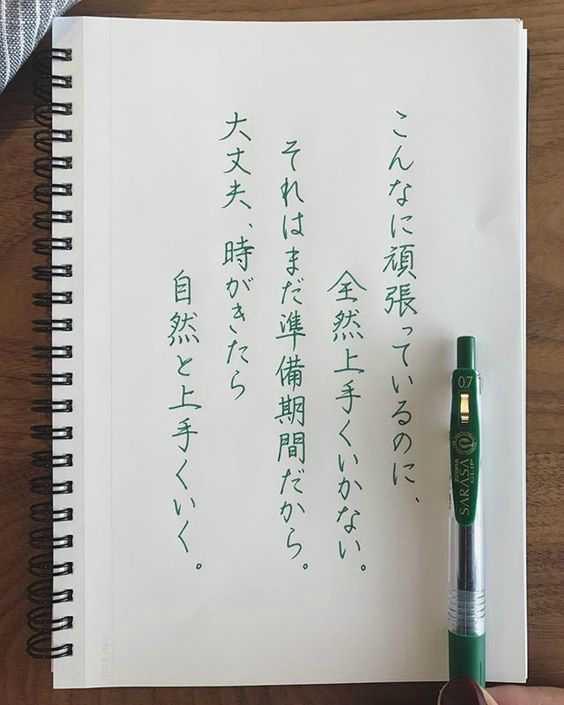 こんなに頑張っているのに、
全然上手くいかない。
それはまだ準備期間だから。
大丈夫、時がきたら
自然と上手くいく。
0.7
ZEBRA
SARASA
CLIP